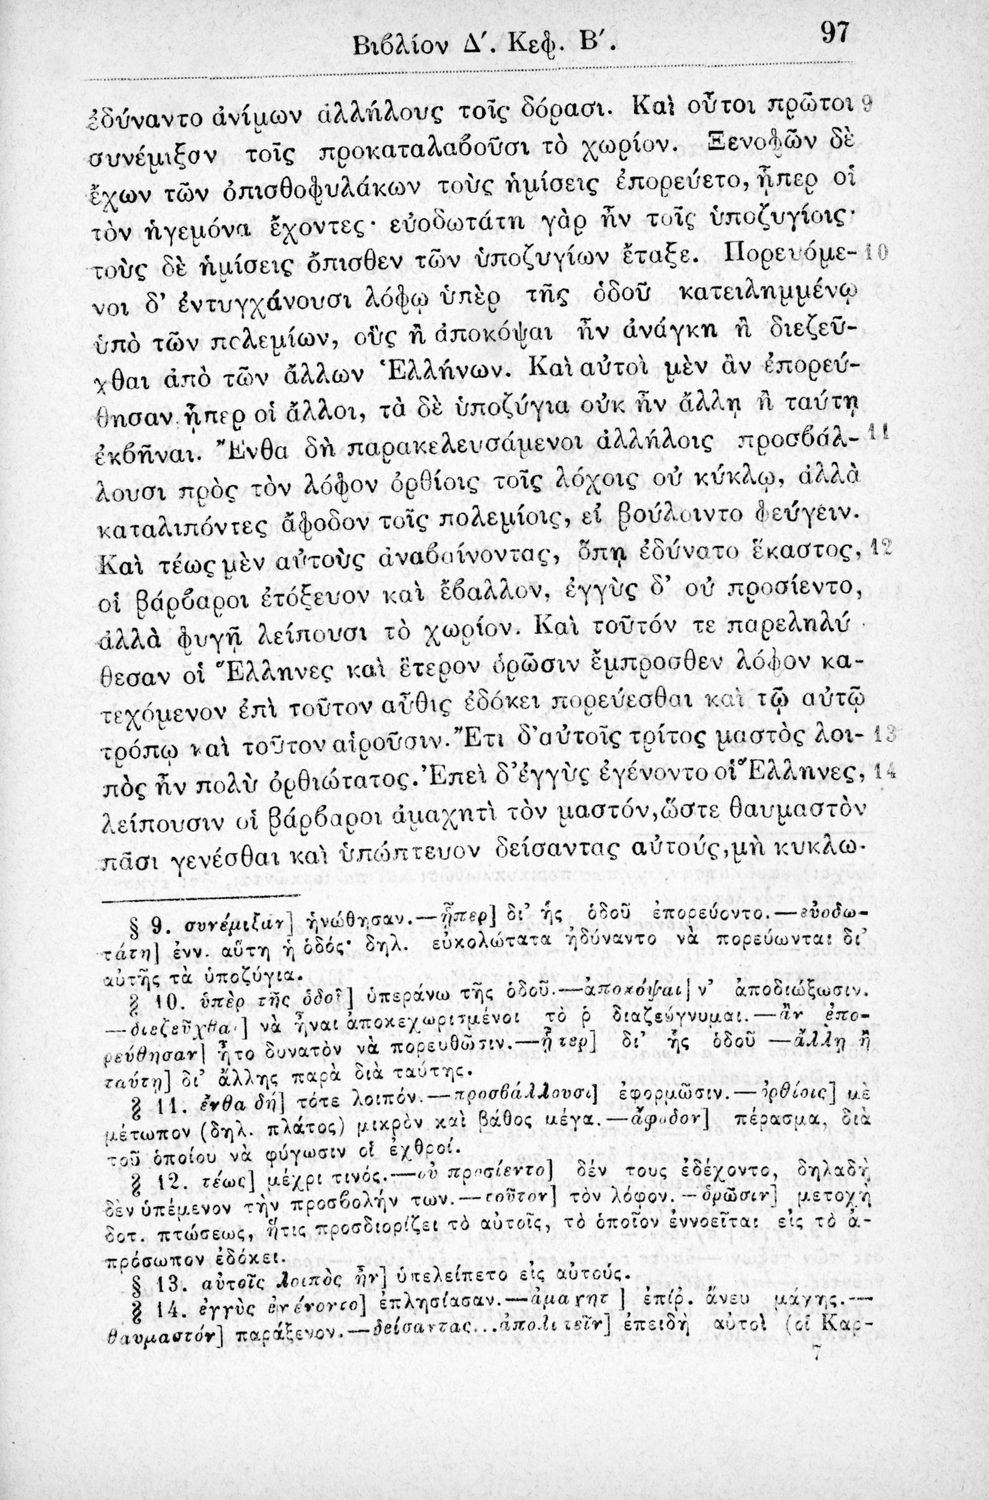 Βιβλίον Δ΄. Κεφ. Β΄. 97
ἐδύναντο ἀνίμων ἀλλήλους τοῖς δόρασι. Καὶ οὗτοι πρῶτοι 9
συνέμιξαν τοῖς προκαταλαβοῦσι τὸ χωρίον. Ξενοφῶν δὲ
ἔχων τῶν ὀπισθοφυλάκων τοὺς ἡμίσεις ἐπορεύετο, ᾗπερ οἱ
τὸν ἡγεμόνα ἔχοντες· εὐοδωτάτη γὰρ ἦν τοῖς ὑποζυγίοις·
τοὺς δὲ ἡμίσεις ὄπισθεν τῶν ὑποζυγίων ἔταξε. Πορευόμε- 10
νοι δ’ ἐντυγχάνουσι λόφῳ ὑπὲρ τῆς ὁδοῦ κατειλημμένῳ
ὑπὸ τῶν πολεμίων, οὓς ἢ ἀποκόψαι ἦν ἀνάγκη ἢ διεζεῦ-
χθαι ἀπὸ τῶν ἄλλων Ἑλλήνων. Καὶ αὐτοὶ μὲν ἂν ἐπορεύ-
θησαν, ᾗπερ οἱ ἄλλοι, τὰ δὲ ὑποζύγια οὐκ ἦν ἄλλῃ ἢ ταύτῃ
ἐκβῆναι. Ἔνθα δὴ παρακελευσάμενοι ἀλλήλοις προσβάλ- 11
λουσι πρὸς τὸν λόφον ὀρθίοις τοῖς λόχοις οὐ κύκλῳ, ἀλλὰ
καταλιπόντες ἄφοδον τοῖς πολεμίοις, εἰ βούλοιντο φεύγειν.
Καὶ τέως μὲν αὐτοὺς ἀναβαίνοντας, ὅπῃ ἐδύνατο ἕκαστος, 12
οἱ βάρβαροι ἐτόξευον καὶ ἔβαλλον, ἐγγὺς δ’ οὐ προσίεντο,
ἀλλὰ φυγῇ λείπουσι τὸ χωρίον. Καὶ τοῦτόν τε παρεληλύ-
θεσαν οἱ Ἕλληνες καὶ ἕτερον ὁρῶσιν ἔμπροσθεν λόφον κα-
τεχόμενον ἐπὶ τοῦτον αὖθις ἐδόκει πορεύεσθαι καὶ τῷ αὐτῷ
τρόπῳ καὶ τοῦτον αἱροῦσιν. Ἔτι δ’αὐτοῖς τρίτος μαστὸς λοι- 13
πὸς ἦν πολὺ ὀρθιώτατος. Ἐπεὶ δ’ἐγγὺς ἐγένοντο οἱ Ἕλληνες, 14
λείπουσιν οἱ βάρβαροι ἀμαχητὶ τὸν μαστόν, ὥστε θαυμαστὸν
πᾶσι γενέσθαι καὶ ὑπώπτευον δείσαντας αὐτούς, μὴ κυκλω-
§ 9. συνέμιξαν] ἡνώθησαν.—ᾗπερ] δι’ ἧς ὁδοῦ ἐπορεύοντο.—εὐοδω-
τάτη] ἐνν. αὕτη ἡ ὁδός· δηλ. εὐκολώτατα ἠδύναντο νὰ πορεύωνται δι’
αὐτῆς τὰ ὑποζύγια.
§ 10. ὑπὲρ τῆς ὁδοῦ] ὑπεράνω τῆς ὁδοῦ.—ἀποκόψαι] ν’ ἀποδιώξωσιν.
—διεζεῦχθαι] νὰ ἦναι ἀποκεχωρισμένοι τὸ ῥ διαζεύγνυμαι.—ἂν ἐπο-
ρεύθησαν] ἦτο δυνατὸν νὰ πορευθῶσιν.—ᾗπερ] δι’ ἧς ὁδοῦ—ἄλλῃ ἢ
ταύτῃ] δι’ ἄλλης παρὰ διὰ ταύτης.
§ 11. ἔνθα δή] τότε λοιπόν.—προσβάλλουσι] ἐφορμῶσιν.—ὀρθίοις] μὲ
μέτωπον (δηλ. πλάτος) μικρὸν καὶ βάθος μέγα.—ἄφοδον] πέρασμα, διὰ
τοῦ ὁποίου νὰ φύγωσιν οἱ ἐχθροί.
§ 12. τέως] μέχρι τινός.—οὐ προσίεντο] δέν τους ἐδέχοντο, δηλαδὴ
δὲν ὑπέμενον τὴν προσβολήν των.—τοῦτον] τὸν λόφον.—ὁρῶσιν] μετοχὴ
δοτ. πτώσεως, ἥτις προσδιορίζει τὸ αὐτοῖς, τὸ ὁποῖον ἐννοεῖται εἰς τὸ ἀ-
πρόσωπον ἐδόκει.
§ 13. αὐτοῖς λοιπὸς ἦν] ὑπελείπετο εἰς αὐτούς.
§ 14. ἐγγὺς ἐγένοντο] ἐπλησίασαν.—ἀμαχητὶ] ἐπίρ. ἄνευ μάχης.—
θαυμαστόν] παράξενον.—δείσαντας...ἀπολιπεῖν] ἐπειδὴ αὐτοὶ (οἱ Καρ-
7